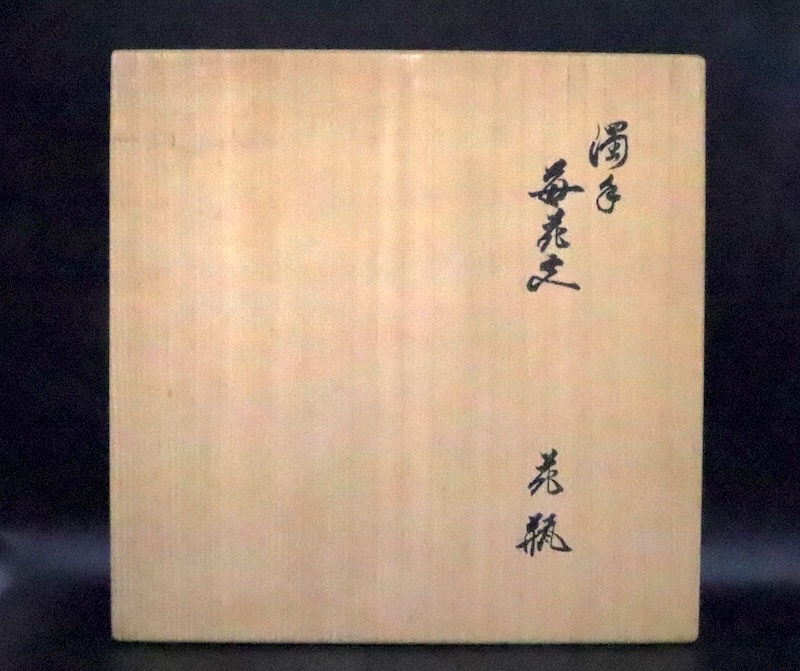 濁手
苺花文 花瓶